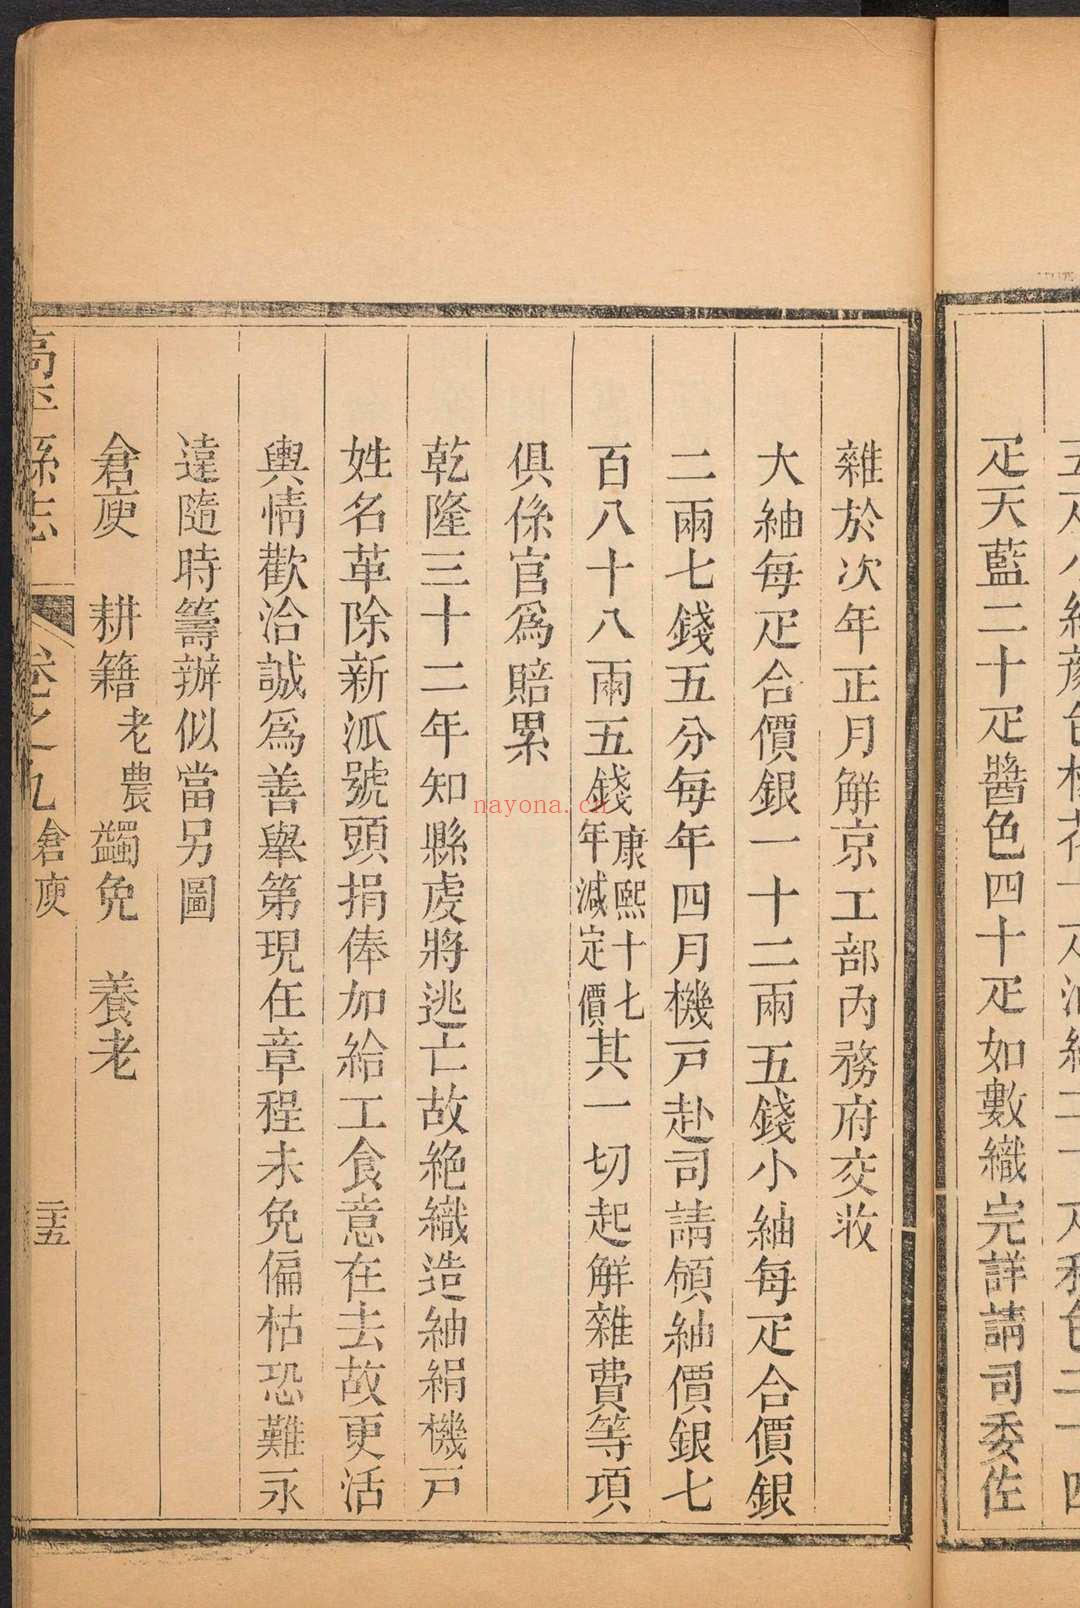 疋天藍二十疋醬色四十疋如數織完詳請司委佐
雜於次年正月解京工部內務府交收
大紬每疋合價銀一十二兩五錢小紬每疋合價銀
二兩七錢五分每年四月機戸赴司請領紬價銀七
百八十八兩五錢康熙十七年減定價其一切起解雜費等項
俱係官爲賠累
乾隆三十二年知縣虔將逃亡故絶織造紬絹機戸
姓名革除新派號頭捐俸加給工食意在去故更活
輿情歡洽誠爲善舉第現在章程未免偏枯恐難永
遠隨時籌辦似當另圖
倉庾 耕籍老農蠲免 養老
高平縣志 卷之九 倉庾 二十五
nayona.cn